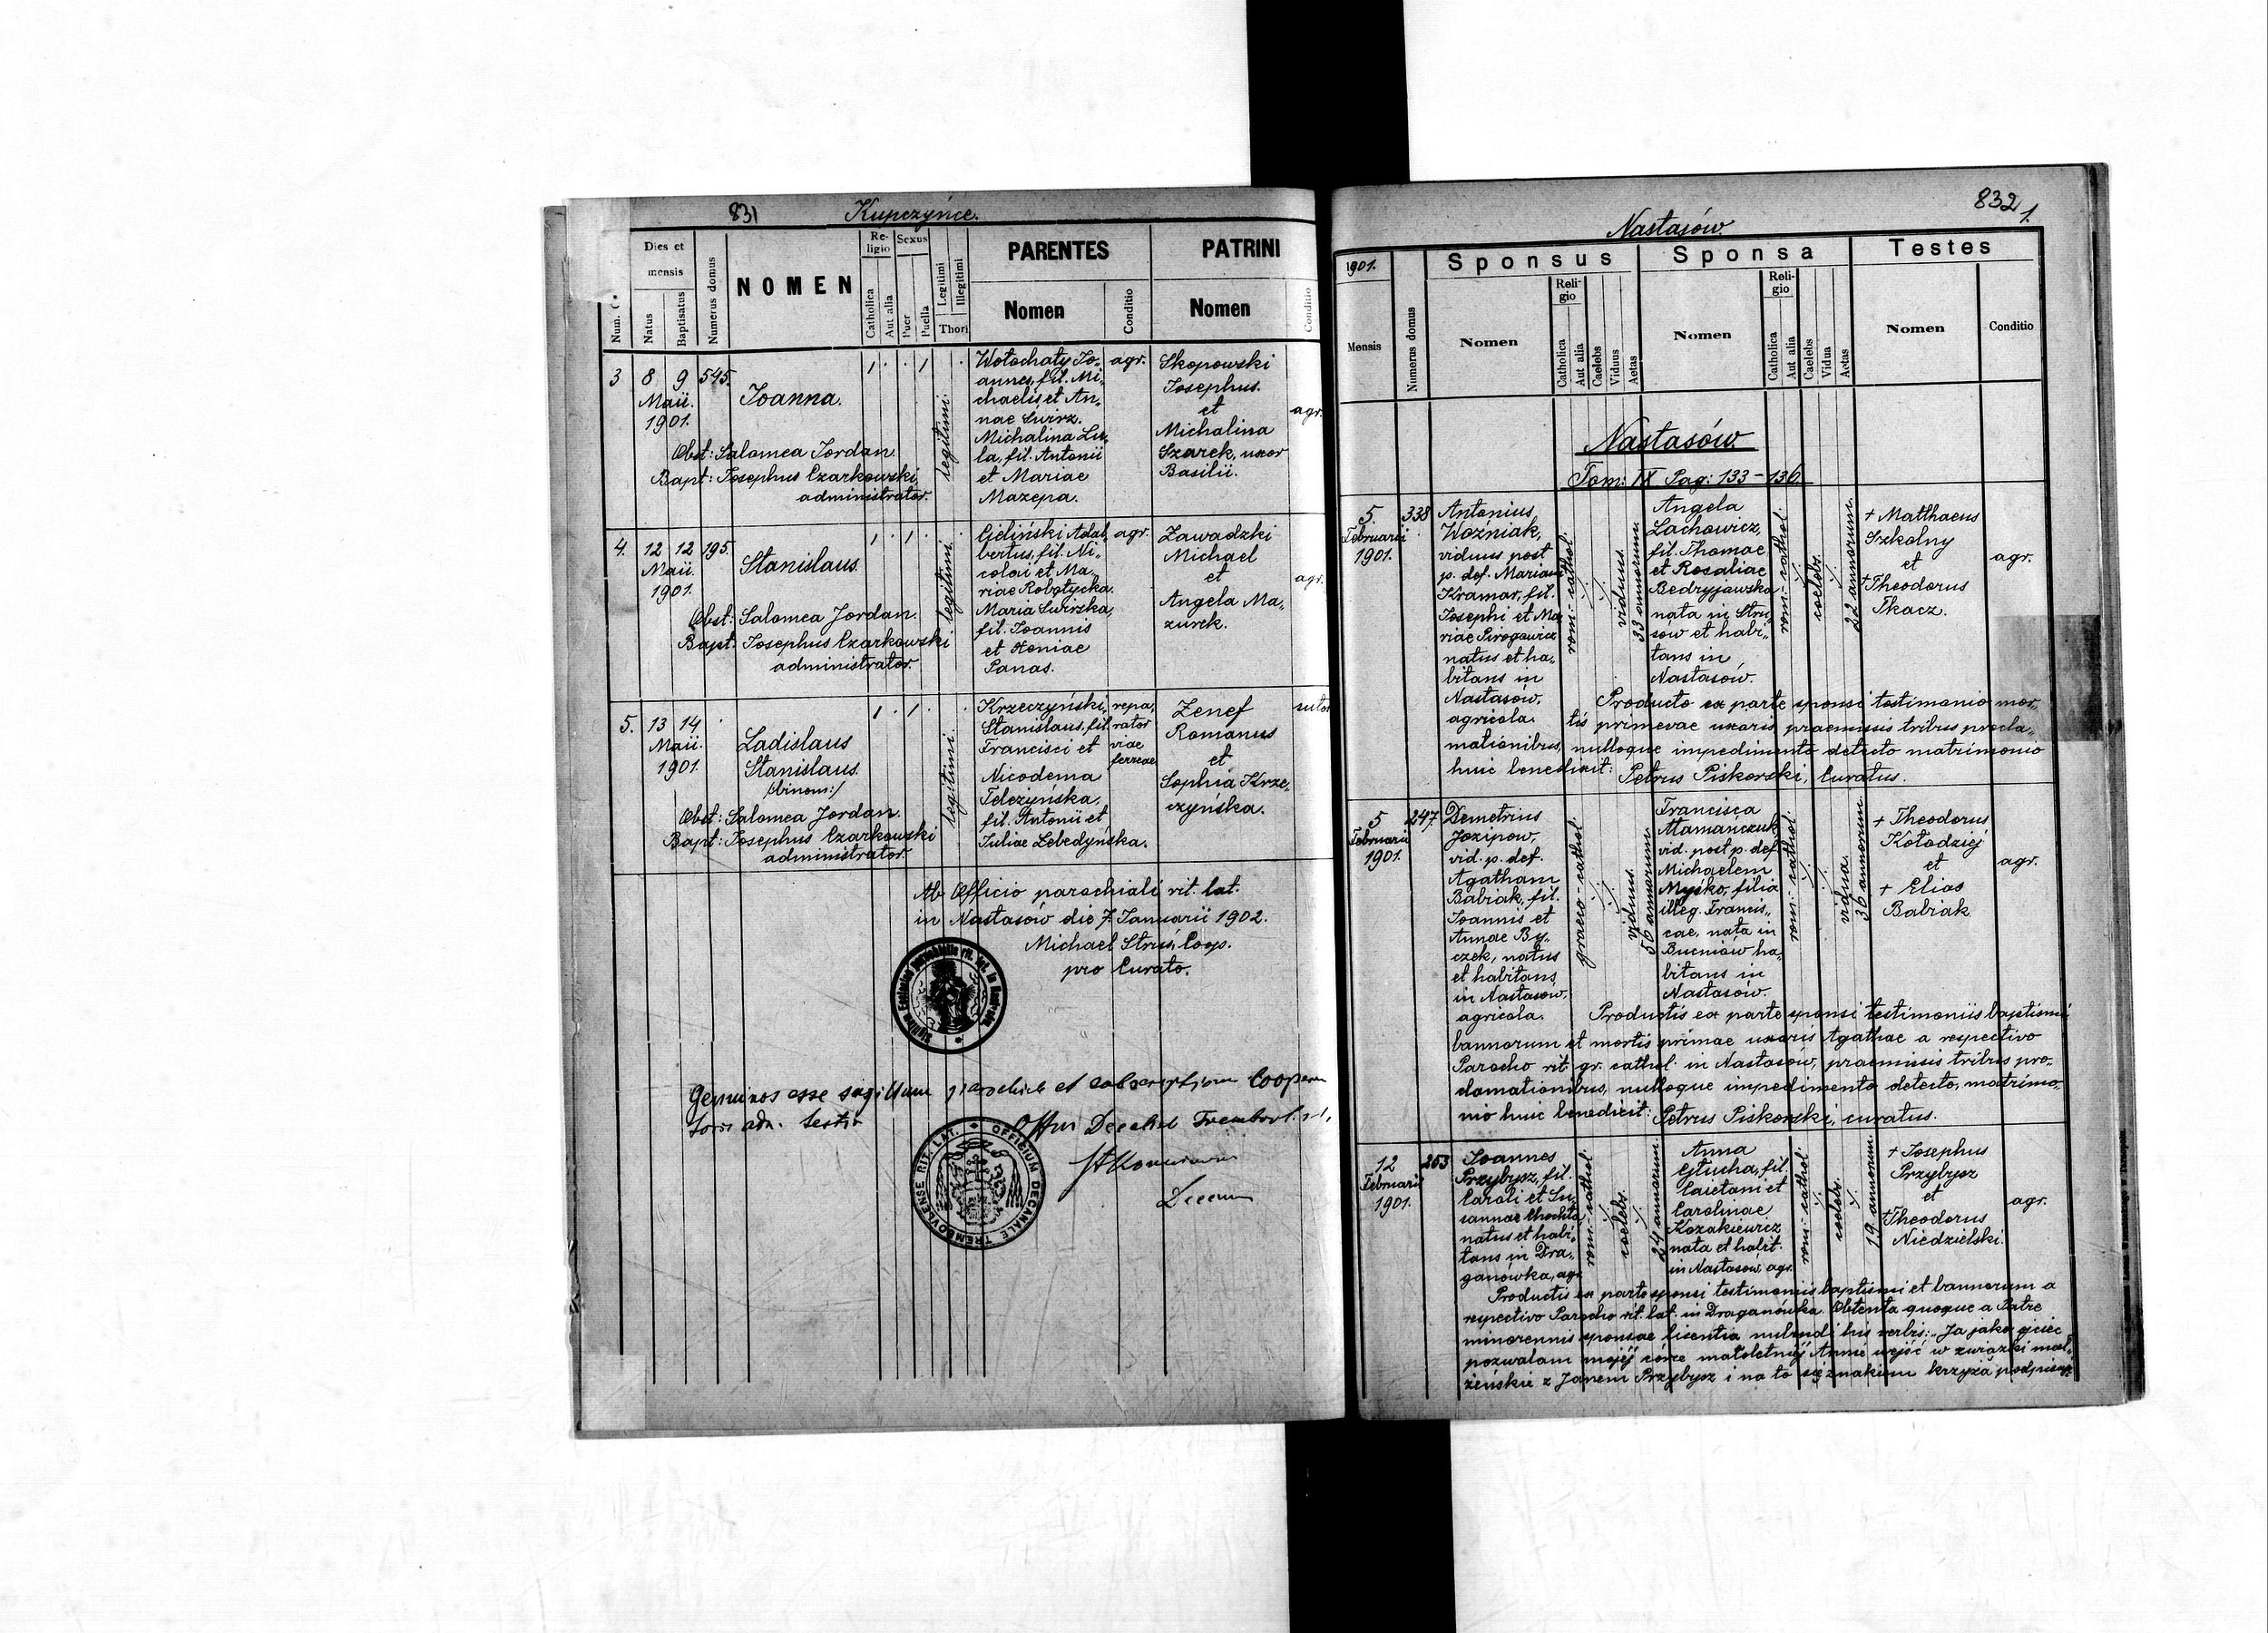 831 Kupczyńce.
Num. C.
Dies et mensis
Natus
Baptisatus
Numerus domus
NOMEN
Religio
Catholica
Aut alia
Sexus
Puer
Puella
Legitimi
Illegitimi
Thori
PARENTES
Nomen
Conditio
PATRINI
Nomen
Conditio
3 8 9 545.
Maii.
1901.
Joanna.
Obst: Salomea Jordan.
Bapt: Josephus Czarkowski
administrator.
legitimi.
Wołochaty Jo„
annes, fil. Mi„
chaelis et An„
nae Świrz.
Michalina Lu„
la, fil. Antonii
et Mariae
Mazepa.
agr.
Skopowski
Josephus.
et
Michalina
Szarek, uxor
Basilii.
agr.
4. 12 12 195.
Maii.
1901.
Stanislaus.
Obst: Salomea Jordan.
Bapt: Josephus Czarkowski
administrator.
legitimi.
Cieliński Adal„
bertus, fil. Ni„
colai et Ma„
riae Robotycka.
Maria Świrska,
fil. Joannis
et Xeniae
Panas.
agr.
Zawadzki
Michael
et
Angela Ma„
zurek.
agr.
5. 13 14
Maii.
1901.
Ladislaus
Stanislaus.
/:binom:/
Obst: Salomea Jordan.
Bapt: Josephus Czarkowski
administrator.
legitimi.
Krzeczyński
Stanislaus, fil.
Francisci et
Nicodema
Teleżyńska,
fil. Antonii et
Juliae Lebedyńska.
repa„
rator
viae
ferreae
Zenef
Romanus
et
Sophia Krze„
czyńska.
sutor
Ab Officio parochiali rit. lat.
in Nastasów die 7. Januarii 1902.
Michael Struś, Coop.
pro Curato.
Genuinos esse sigillum parochiale et subscriptionem Coopera
toris
OFFICIUM DECANALE TREMBOVLENSE RIT. LAT.
832
1.
Nastasów.
1901.
Mensis
Numerus domus
Sponsus
Nomen
Religio
Catholica
Aut alia
Caelebs
Viduus
Aetas
Sponsa
Nomen
Religio
Catholica
Aut alia
Caelebs
Vidua
Aetas
Testes
Nomen
Conditio
Nastasów.
Tom: IX Pag: 133 – 136
5. 338
Februarii
1901.
Antonius
Woźniak,
viduus post
p. def. Mariam
Kramar, fil.
Josephi et Ma„
riae Pirogowicz
natus et ha„
bitans in
Nastasów,
agricola.
rom.-cathol.
viduus.
33 annorum.
Angela
Lachowicz,
fil. Thomae
et Rosaliae
Bedryjawska
nata in Stru„
sów et habi„
tans in
Nastasów.
rom.-cathol.
coelebs.
22 annorum.
+ Matthaeus
Szkolny
et
+ Theodorus
Tkacz.
agr.
Producto ex parte sponsi testimonio mor„
tis primevae uxoris, praemissis tribus procla„
mationibus, nulloque impedimento detecto matrimonio
huic benedixit: Petrus Piskorski, Curatus.
5 247.
Februarii
1901.
Demetrius
Jozipow,
vid. p. def.
Agatham
Babiak, fil.
Joannis et
Annae By„
czek, natus
et habitans
in Nastasów,
agricola.
graeco-cathol.
viduus.
56 annorum.
Francisca
Mamanczuk
vid. post p. def.
Michaelem
Myśko, filia
illeg. Francis„
cae, nata in
Bucniów ha„
bitans in
Nastasów.
rom.-cathol.
vidua.
36 annorum.
+ Theodorus
Kołodziej
et
+ Elias
Babiak
agr.
Productis ex parte sponsi testimoniis baptismi
bannorum et mortis primae uxoris Agathae a respectivo
Parocho rit. gr. cathol. in Nastasów, praemissis tribus pro„
clamationibus, nulloque impedimento detecto, matrimo„
nio huic benedixit: Petrus Piskorski, curatus.
12 253
Februarii
1901.
Joannes
Przybysz, fil.
Caroli et Su„
sannae Chochła
natus et habi„
tans in Dra„
ganówka, agr.
rom.-cathol.
coelebs.
24 annorum.
Anna
Głucha, fil.
Caietani et
Carolinae
Kozakiewicz
nata et habit.
in Nastasów, agr.
rom.-cathol.
coelebs.
19 annorum.
+ Josephus
Przybysz
et
+ Theodorus
Niedzielski.
agr.
Productis ex parte sponsi testimoniis baptismi et bannorum a
respectivo Parocho rit. lat. in Draganówka. Obtenta quoque a Patre
minorennis sponsae licentia nubendi his verbis: „Ja jako ojciec
pozwalam mojéj córce małoletniéj Annie wejść w związki mał„
żeńskie z Janem Przybysz i na to się znakiem krzyża podpisuję